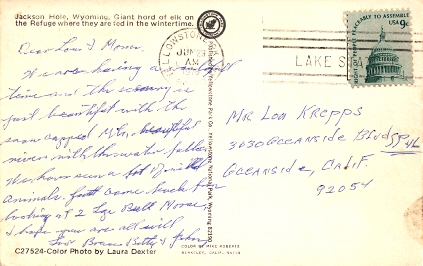 Jackson Hole, Wyoming, Giant herd of elk on
the Refuge where they are fed in the wintertime.
Dear Lou &
We are having a
time and the is
just beautiful with the
snow capped Mts, beautiful
rivers with the water falls.
We have seen a lot of
animals. Just came back from
looking at 2 Lge Bull Moose
I hope you are all well
Betty & John
C27524-Color Photo by Laura Dexter
COLOR BY MIKE ROBERTS
BERKELEY, CALIF.
YELLOWSTONE
JUN 2
AM
LAKE STA
RIGHT OF PEOPLE PEACEABLY TO ASSEMBLE
USA 9c
Mr Lou Krepps
3030 Oceanside Blvd SP 46
Oceanside, Calif.
92054